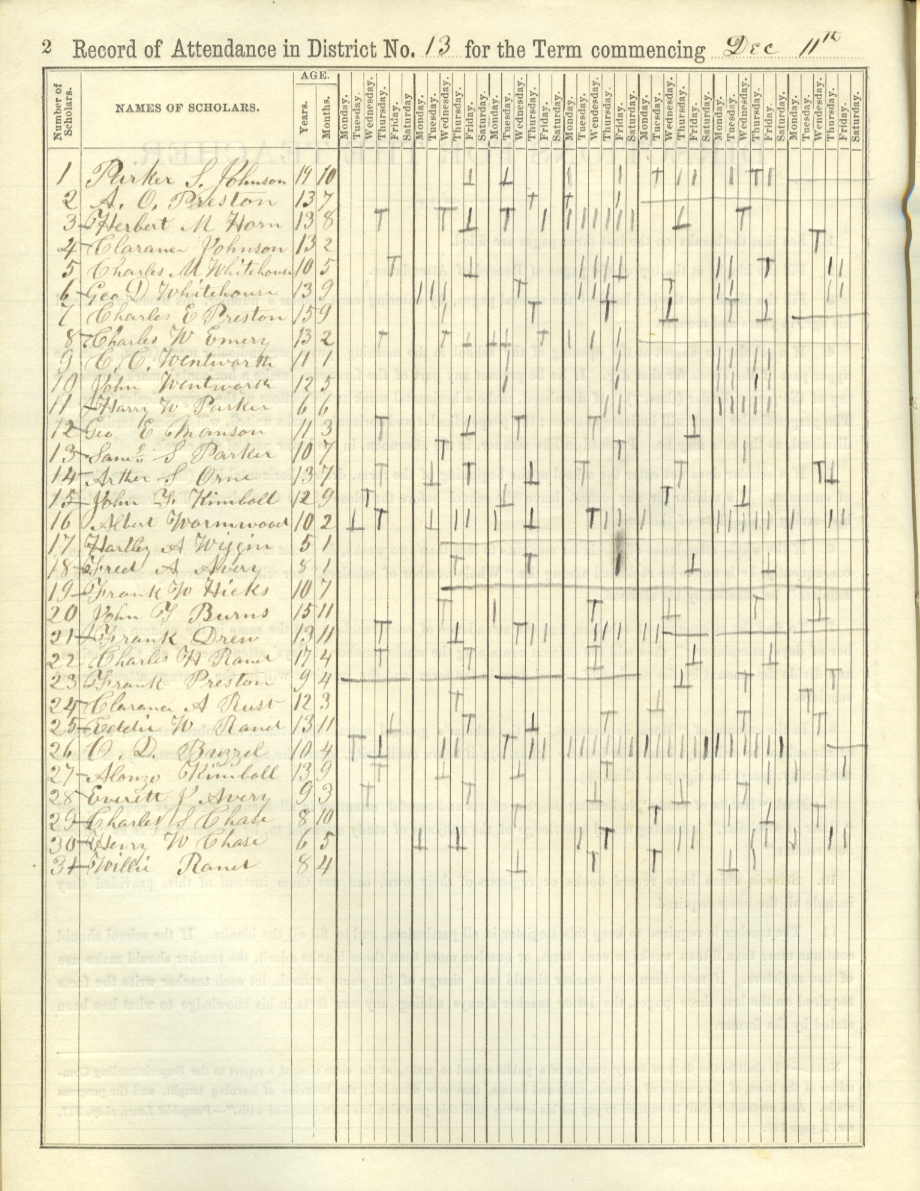 2 Record of Attendance in District No. 13 for the Term commencing Dec 11th
Number of Scholars. NAMES OF SCHOLARS. AGE. Years. Months. Monday. Tuesday. Wednesday. Thursday. Friday. Saturday Monday. Tuesday. Wednesday. Thursday. Friday. Saturday Monday. Tuesday. Wednesday. Thursday. Friday. Saturday. Monday. Tuesday. Wednesday. Thursday. Friday. Saturday. Monday. Tuesday. Wednesday. Thursday. Friday. Saturday Monday. Tuesday. Wednesday. Thursday. Friday. Saturday. Monday. Tuesday. Wednesday. Thursday. Friday. Saturday.
1 Parker S. Johnson 10
2 A. O. Preston 13 7
3 Herbert M Horn 13 8
4 Clarance Johnson 13 2
5 Charles M Whitehouse 10 5
6 Geo D Whitehouse 13 9
7 Charles E Preston 15 9
8 Charles W Emery 13 2
9 C. C. Wentworth 11 1
10 John Wentworth 12 5
11 Harry W Parker 6 6
12 Geo E 11 3
13 Saml S Parker 10 7
14 Arther S Orne 13 7
15 John F. Kimball 12 9
16 Albert Wormwood 10 2
17 Hartley A Wiggin 5 1
18 Fred A Avery 8 1
19 Frank W Hicks 10 7
20 John Burns 15 11
21 Frank Drew 13 11
22 Charles H Rand 17 4
23 Frank Preston 9 4
24 Clarance A Rust 12 3
25 Eddie W Rand 13 11
26 D. Buzzel 10 4
27 Alonzo Kimball 13 9
28 Everett J Avery 9 3
29 Charles S Chase 8 10
30 Henry W Chase 6 5
31 Willie Rand 8 4